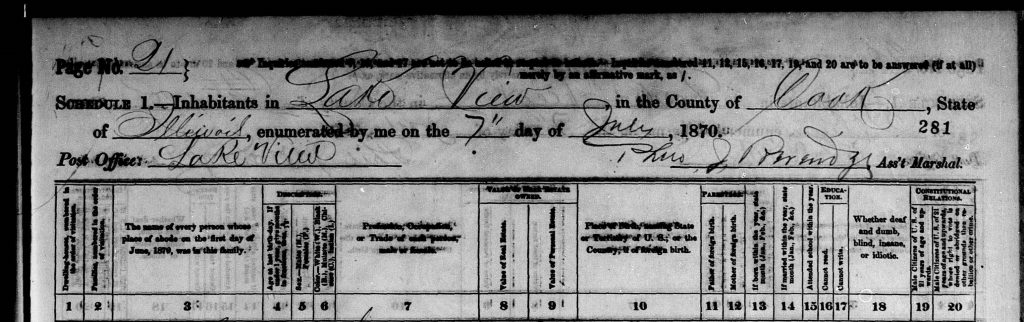 Page No. 21
Inquiries numbered 7, 16, and 17 are not to be asked in respect to infants. Inquiries numbered 11, 12, 15, 16, 17, 19, and 20 are to be answered (if at all)
merely by an affirmative mark, as /.
SCHEDULE 1.—Inhabitants in Lake View, in the County of Cook, State
of Illinois, enumerated by me on the 7" day of July, 1870. 281
Post Office: Lake View J Ass't Marshal.
DESCRIPTION. VALUE OF REAL ESTATE OWNED. PARENTAGE. EDUCATION. CONSTITUTIONAL RELATIONS.
Dwelling-houses, numbered in the order of visitation.
Families, numbered in the order of visitation.
The name of every person whose place of abode on the first day of June, 1870, was in this family.
Age at last birth-day.
Sex.—Males (M.), Females (F.)
Color.—White (W.), Black
Profession, Occupation, or Trade of each person, male or female.
Value of Real Estate.
Value of Personal Estate.
Place of Birth, naming State or Territory of U. S.; or the Country, if of foreign birth.
Father of foreign birth.
Mother of foreign birth.
If born within the year, state month (Jan., Feb., &c.)
If married within the year, state month (Jan., Feb., &c.)
Attended school within the year.
Cannot read.
Cannot write.
Whether deaf and dumb, blind, insane, or idiotic.
Male Citizens of U. S. of 21 years of age and upwards.
1 2 3 4 5 6 7 8 9 10 11 12 13 14 15 16 17 18 19 20